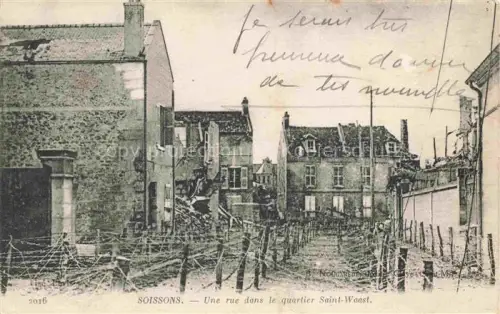 Je serais très
d'avoir
de tes nouvelles
copyright
2026 SOISSONS. — Une rue dans le quartier Saint-Waast.